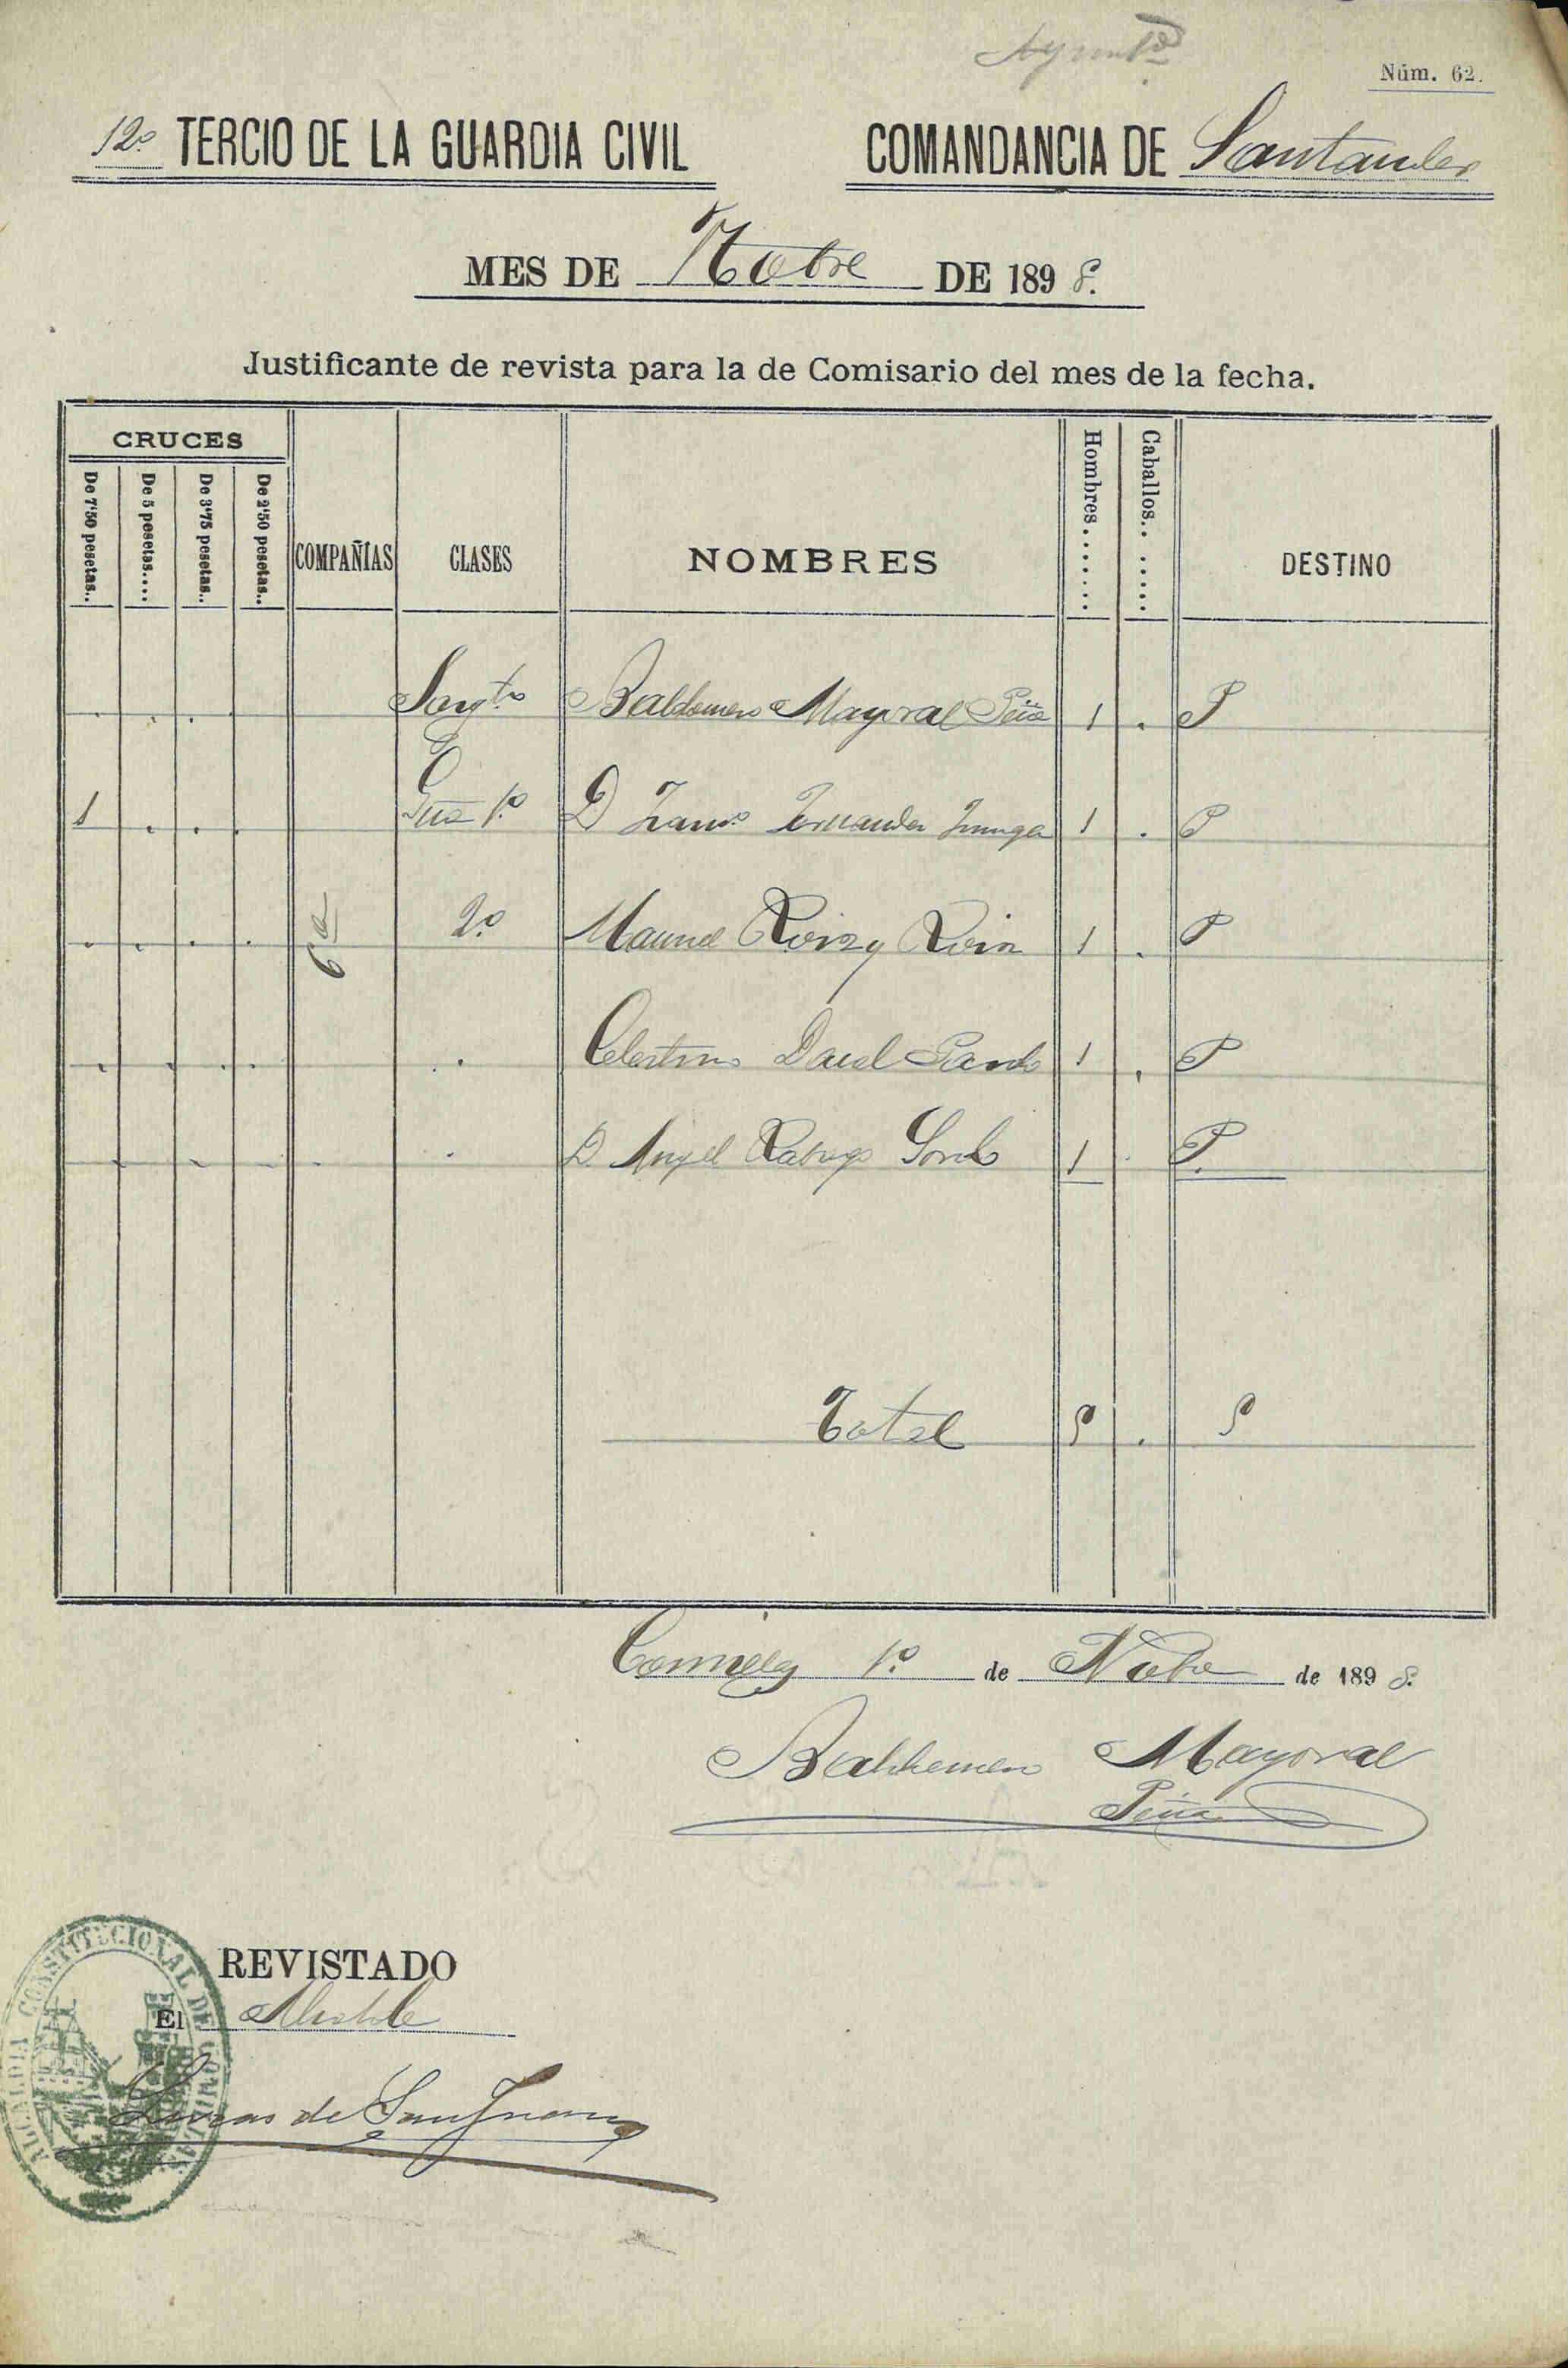 Aynntº
Núm. 62.
12º TERCIO DE LA GUARDIA CIVIL COMANDANCIA DE Santander
MES DE Nobre DE 1898.
Justificante de revista para la de Comisario del mes de la fecha.
CRUCES
De 7'50 pesetas..
De 5 pesetas....
De 3'75 pesetas..
De 2'50 pesetas..
COMPAÑÍAS
CLASES
NOMBRES
Hombres.......
Caballos.......
DESTINO
Sargto Baldomero Mayoral Peña 1 . P
1 . . . 1º D Fernandez 1 . P
6ª
2º Manuel Roiz y Roiz 1 . P
Celestino Pando 1 . P
D. Angel Rabago 1 . P.
Total 5 . 5
Comillas 1º de Nobre de 1898.
Baldomero Mayoral
Peña
REVISTADO
El Alcalde
Lucas de San Juan
ALCALDIA CONSTITUCIONAL DE COMILLAS